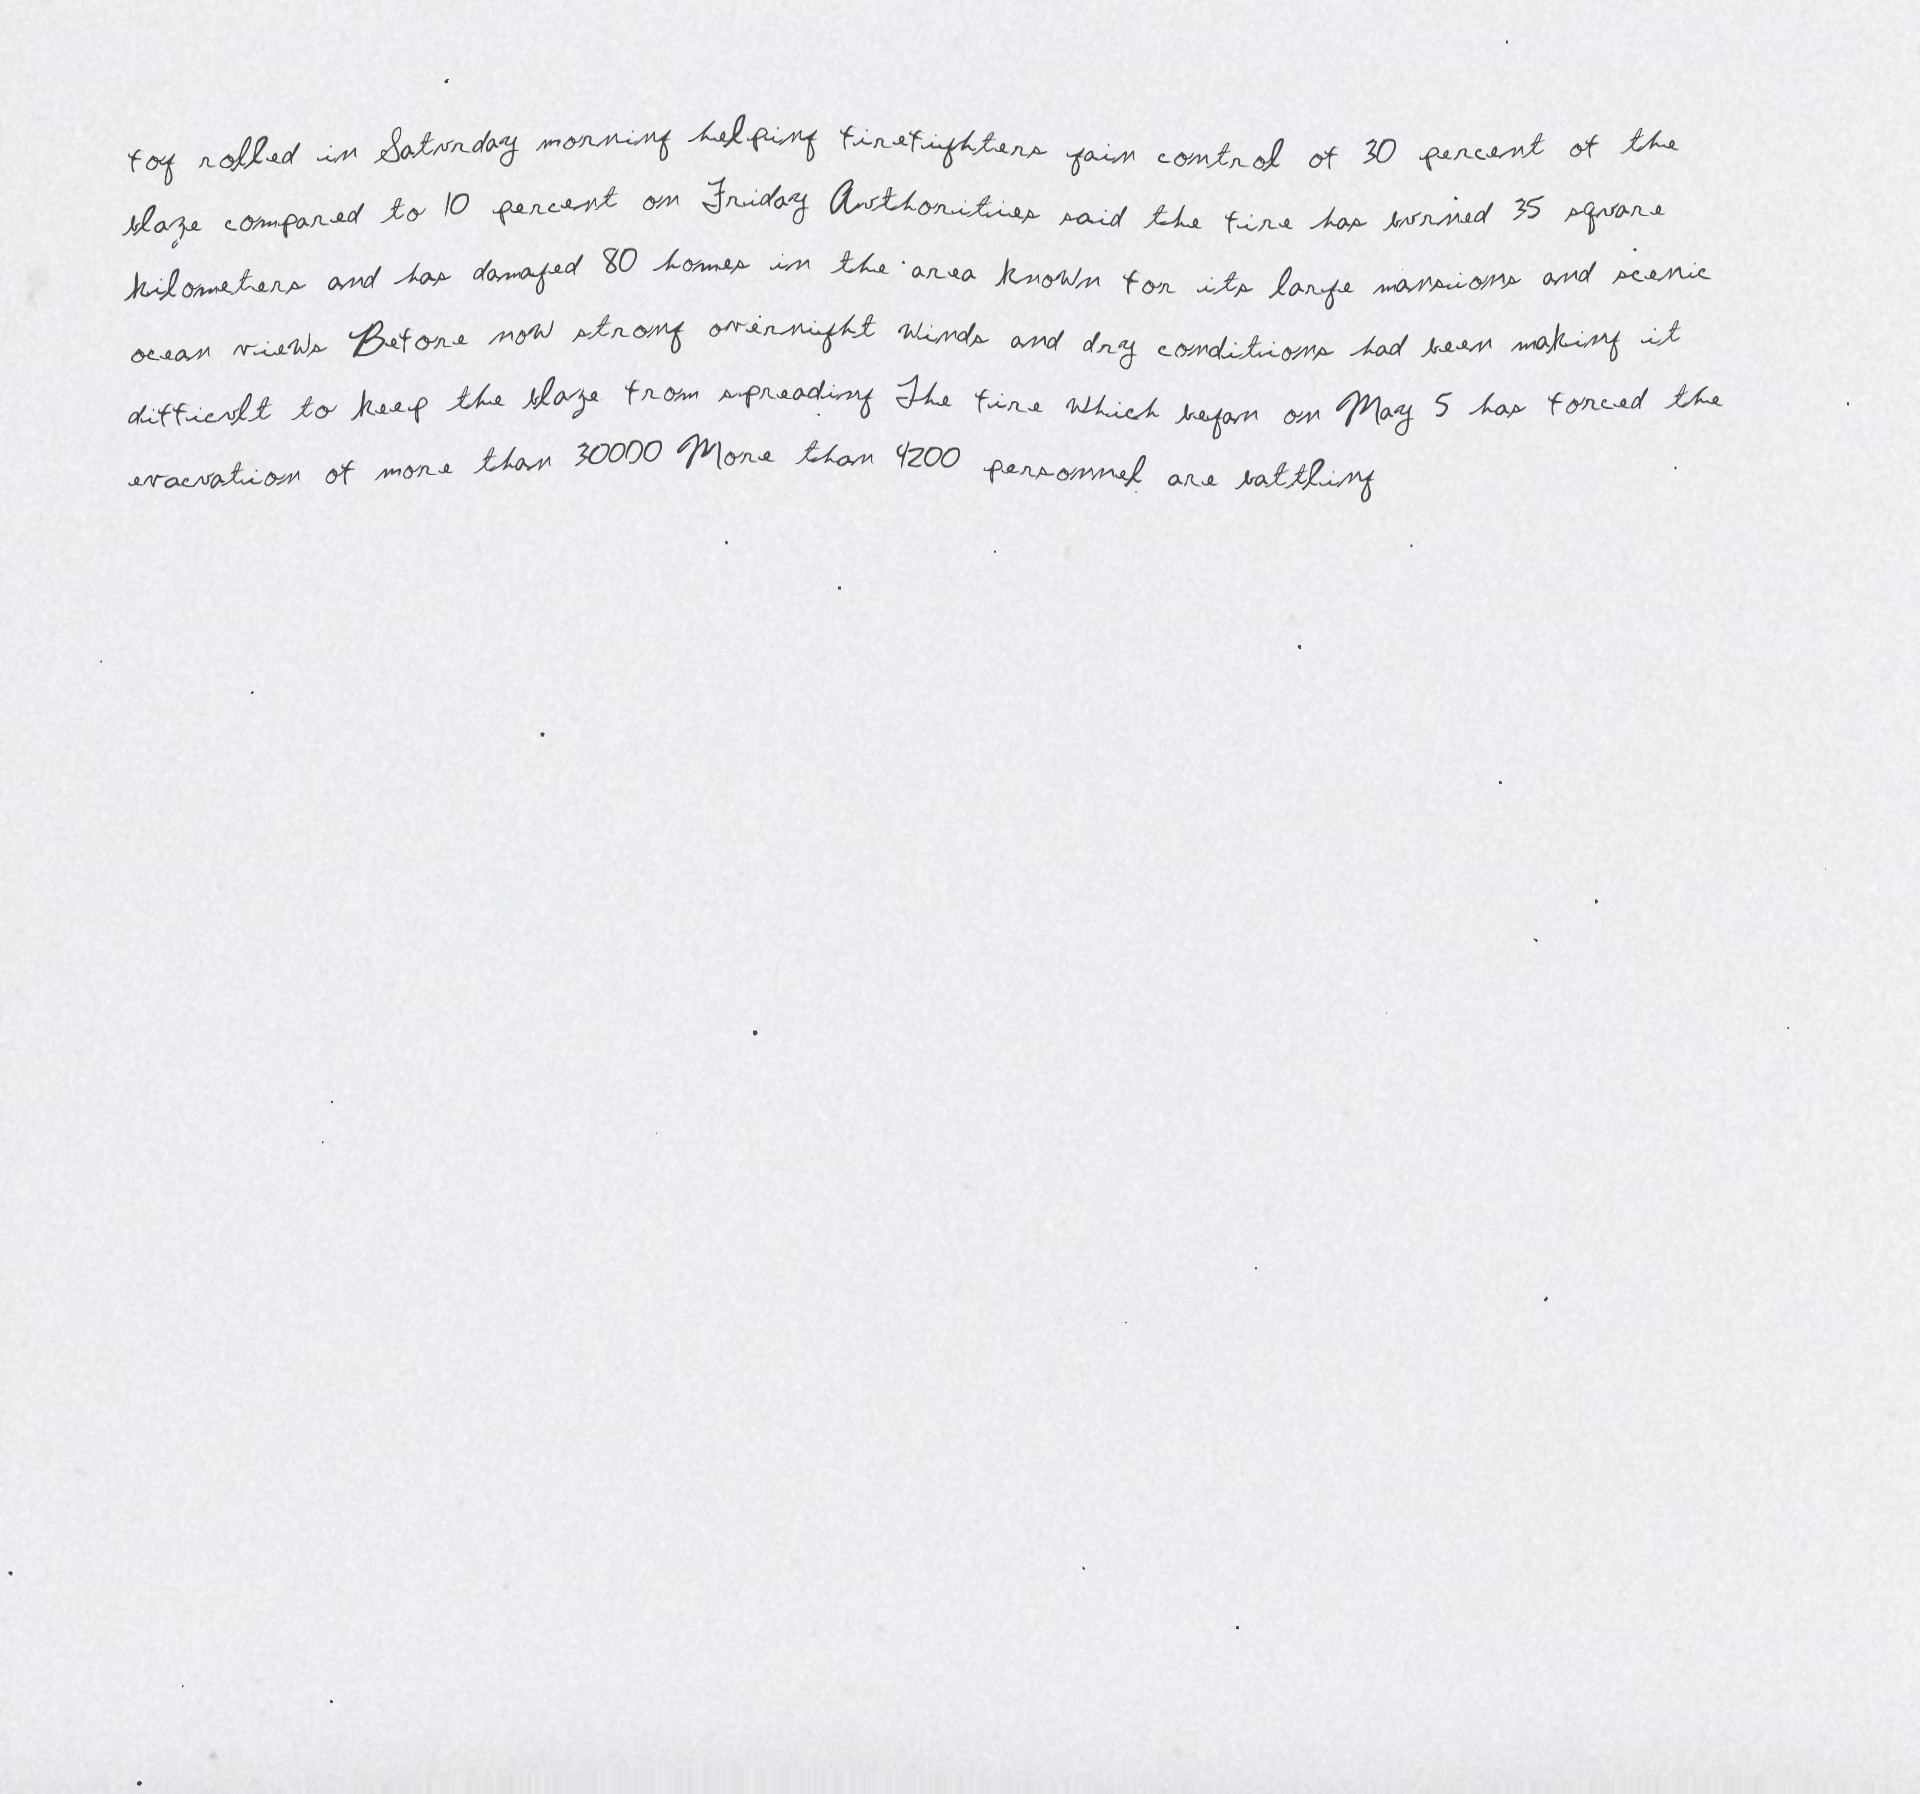 fog rolled in Saturday morning helping firefighters gain control of 30 percent of the
blaze compared to 10 percent on Friday Authorities said the fire has burned 35 square
kilometers and has damaged 80 homes in the area known for its large mansions and scenic
ocean views Before now strong overnight winds and dry conditions had been making it
difficult to keep the blaze from spreading The fire which began on May 5 has forced the
evacuation of more than 30000 More than 4200 personnel are battling